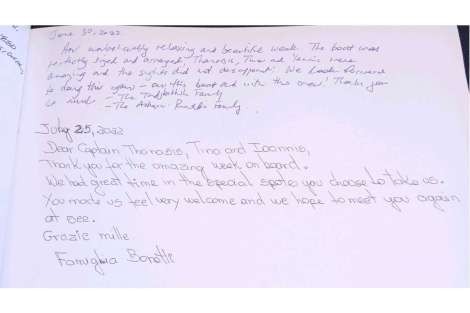 June 30, 2022
How wonderfully relaxing and beautiful week. The boat was
perfectly sized and arranged, Thanasis, Tino and Yannis were
amazing and the sights did not disappoint! We look forward
to doing this again - on this boat and with this crew! Thank you
so much - The Family
- The Family
July 25, 2022
Dear Captain Thanasis, Tino and Ioannis,
Thank you for the amazing week on board.
We had great time in the special spots you choose to take us.
You made us feel very welcome and we hope to meet you again
at see.
Grazie mille
Famiglia